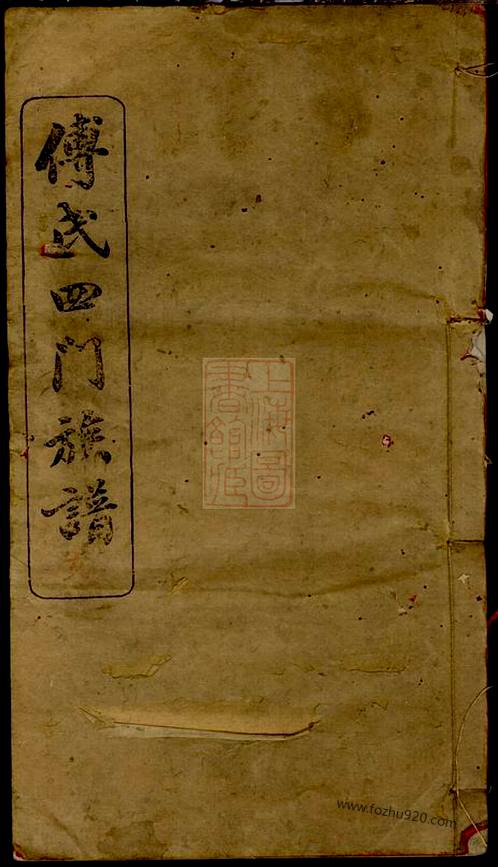 傅氏四門族譜
上海圖
書館藏
www.fozhu920.com